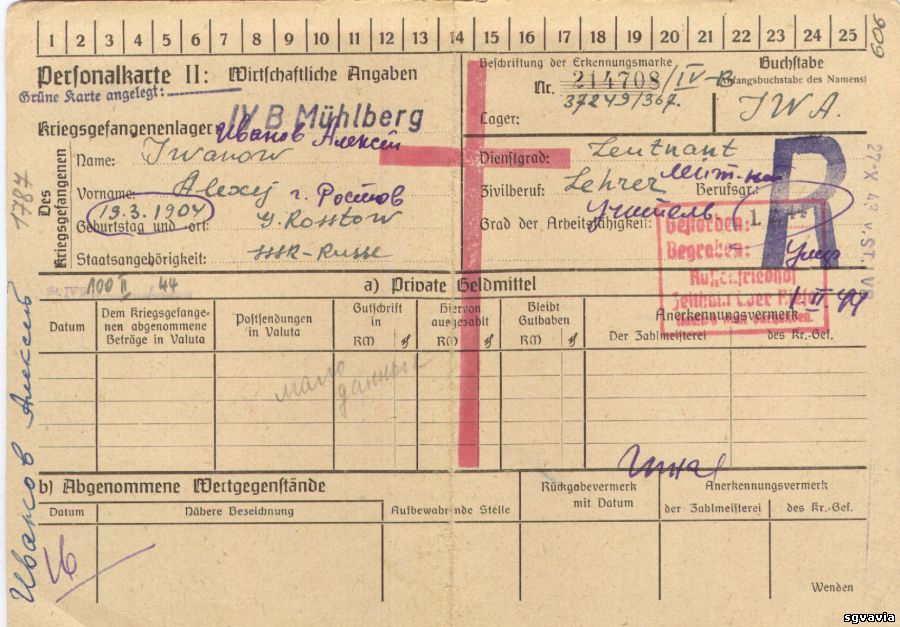 1 2 3 4 5 6 7 8 9 10 11 12 13 14 15 16 17 18 19 20 21 22 23 24 25
606
Personalkarte II: Wirtschaftliche Angaben
Grüne Karte angelegt:
Beschriftung der Erkennungsmarke
Nr. 214708/IV-B
37249/367.
Lager:
Buchstabe
(Anfangsbuchstabe des Namens)
IWA.
Kriegsgefangenenlager: IV B Mühlberg
Иванов Алексей
Des Kriegsgefangenen
Name: Iwanow
Vorname: Alexej г. Ростов
19.3.1904
Geburtstag und -ort: G. Rosstow
Staatsangehörigkeit: SSSR-Russe
Dienstgrad: Leutnant
Zivilberuf: Lehrer
Berufsgr.:
Grad der Arbeitsfähigkeit: Учитель.
R
Gestorben: 1.
Begraben:
Russenfriedhof
Zeithain über Riesa
Умер
1 II 44
27-X 43 v. ST. IVB
1787
100 II 44
a) Private Geldmittel
Datum
Dem Kriegsgefangenen abgenommene Beträge in Valuta
Postsendungen in Valuta
Gutschrift in
RM
Hiervon ausgezahlt
RM
Bleibt Guthaben
RM
Anerkennungsvermerk
Der Zahlmeisterei
des Kr.-Gef.
мало
данных
b) Abgenommene Wertgegenstände
Datum
Nähere Bezeichnung
Aufbewahrende Stelle
Rückgabevermerk mit Datum
Anerkennungsvermerk
der Zahlmeisterei
des Kr.-Gef.
Иванов Алексей
Wenden
sgvavia